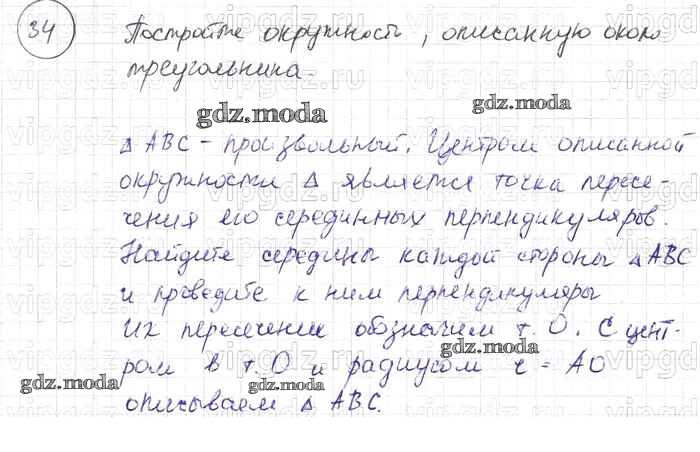 34 Постройте окружность, описанную около
треугольника.
gdz.moda gdz.moda
△ ABC - произвольный. Центром описанной
окружности △ является точка пересе-
чения его серединных перпендикуляров.
Найдите середины каждой стороны △ ABC
и проведите к ним перпендикуляры
Их пересечение обозначим т. О. С цент-
gdz.moda
ром в т. О и радиусом r = AO
gdz.moda gdz.moda
описываем △ ABC.